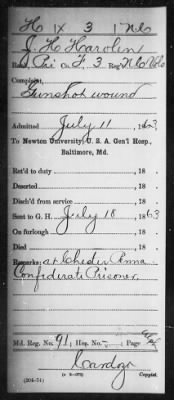 H | X | 3 | N.C.
J. H. Harolin
Rank Pri Co. F. 3 Reg't N.C. Vols
Complaint,
Gunshot wound
Admitted July 11, 1863.
To Newton University U. S. A. Gen'l Hosp.,
Baltimore, Md.
Ret'd to duty , 18 .
Deserted , 18 .
Disch'd from service , 18 .
Sent to G. H. July 18 1863
On furlough , 18 .
Died , 18 .
Remarks: at Chester Penna.
Confederate Prisoner.
Md. Reg. No. 91; Hos. No. ; Page
Cardozo
(204-74) Copyist.